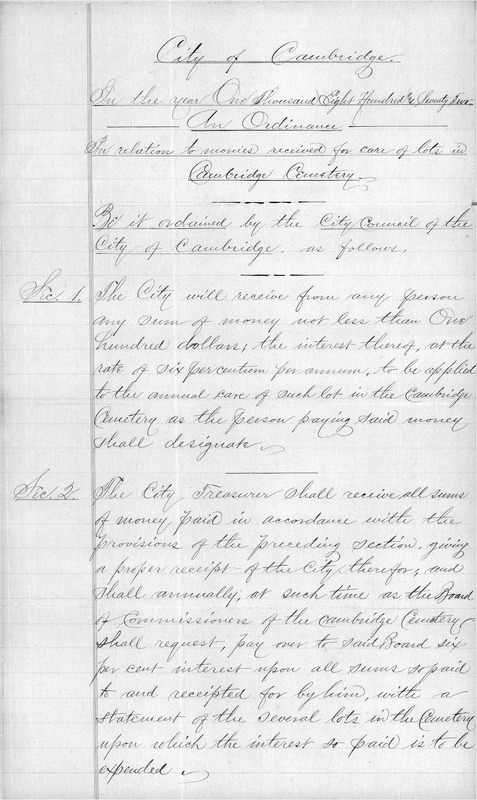 City of Cambridge.
In the year One Thousand Eight Hundred & Seventy Two
An Ordinance
In relation to monies received for care of lots in
Cambridge Cemetery.
Be it ordained by the City Council of the
City of Cambridge, as follows.
Sec. 1. The City will receive from any person
any sum of money not less than One
hundred dollars; the interest thereof, at the
rate of six per centum per annum, to be applied
to the annual care of such lot in the Cambridge
Cemetery as the person paying said money
shall designate.
Sec. 2. The City Treasurer shall receive all sums
of money paid in accordance with the
provisions of the preceding section, giving
a proper receipt of the City therefor; and
shall annually, at such time as the Board
of Commissioners of the Cambridge Cemetery
shall request, pay over to said Board six
per cent interest upon all sums so paid
to and receipted for by him, with a
statement of the several lots in the Cemetery
upon which the interest so paid is to be
expended.